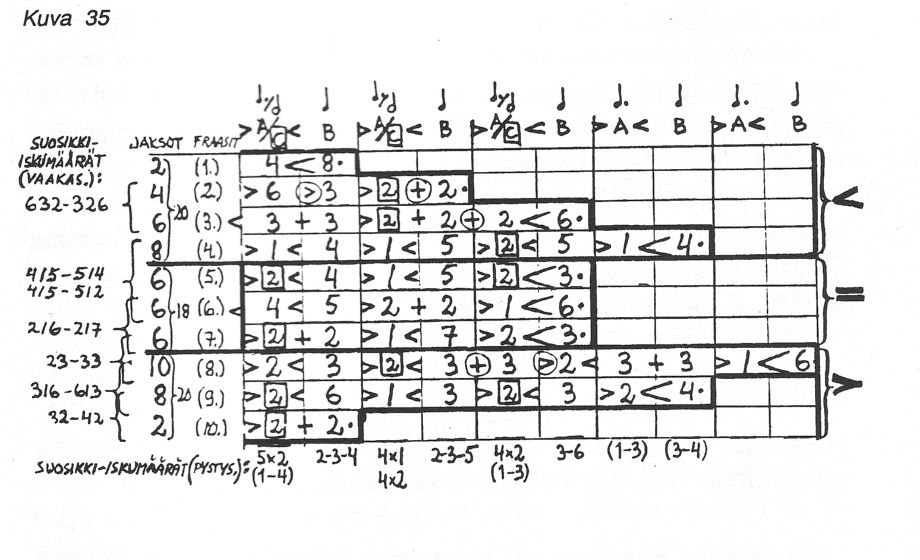 Kuva 35
♩./♩ ♩ ♩./♩ ♩ ♩./♩ ♩ ♩. ♩ ♩. ♩
SUOSIKKI-ISKUMÄÄRÄT (VAAKAS.): JAKSOT FRAASIT >A/C< B >A/C< B >A/C< B >A< B >A< B
2 (1.) 4 < 8·
4 (2.) >6 > 3 >2 + 2·
632-326
6 (3.) < 3 + 3 >2 + 2 + 2 < 6·
20
8 (4.) >1 < 4 >1 < 5 >2 < 5 >1 < 4·
<
415-514
6 (5.) >2 < 4 >1 < 5 >2 < 3·
415-512
6 (6.) < 4 < 5 >2 + 2 >1 < 6·
18
216-217
6 (7.) >2 + 2 >1 < 7 >2 < 3·
=
23-33
10 (8.) >2 < 3 >2 < 3 + 3 > 2 < 3 + 3 >1 < 6
316-613
8 (9.) >2 < 6 >1 < 3 >2 < 3 >2 < 4·
20
32-42
2 (10.) >2 + 2·
>
SUOSIKKI-ISKUMÄÄRÄT (PYSTYS.): 5x2 2-3-4 4x1 2-3-5 4x2 3-6 (1-3) (3-4)
(1-4) 4x2 (1-3)